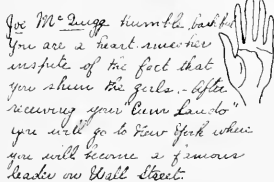 Joe McDugg humble bashful
You are a heart smasher
inspite of the fact that
you shun the girls. - After
receiving your "Cum Laude"
you will go to New York where
you will become a famous
leader on Wall Street.